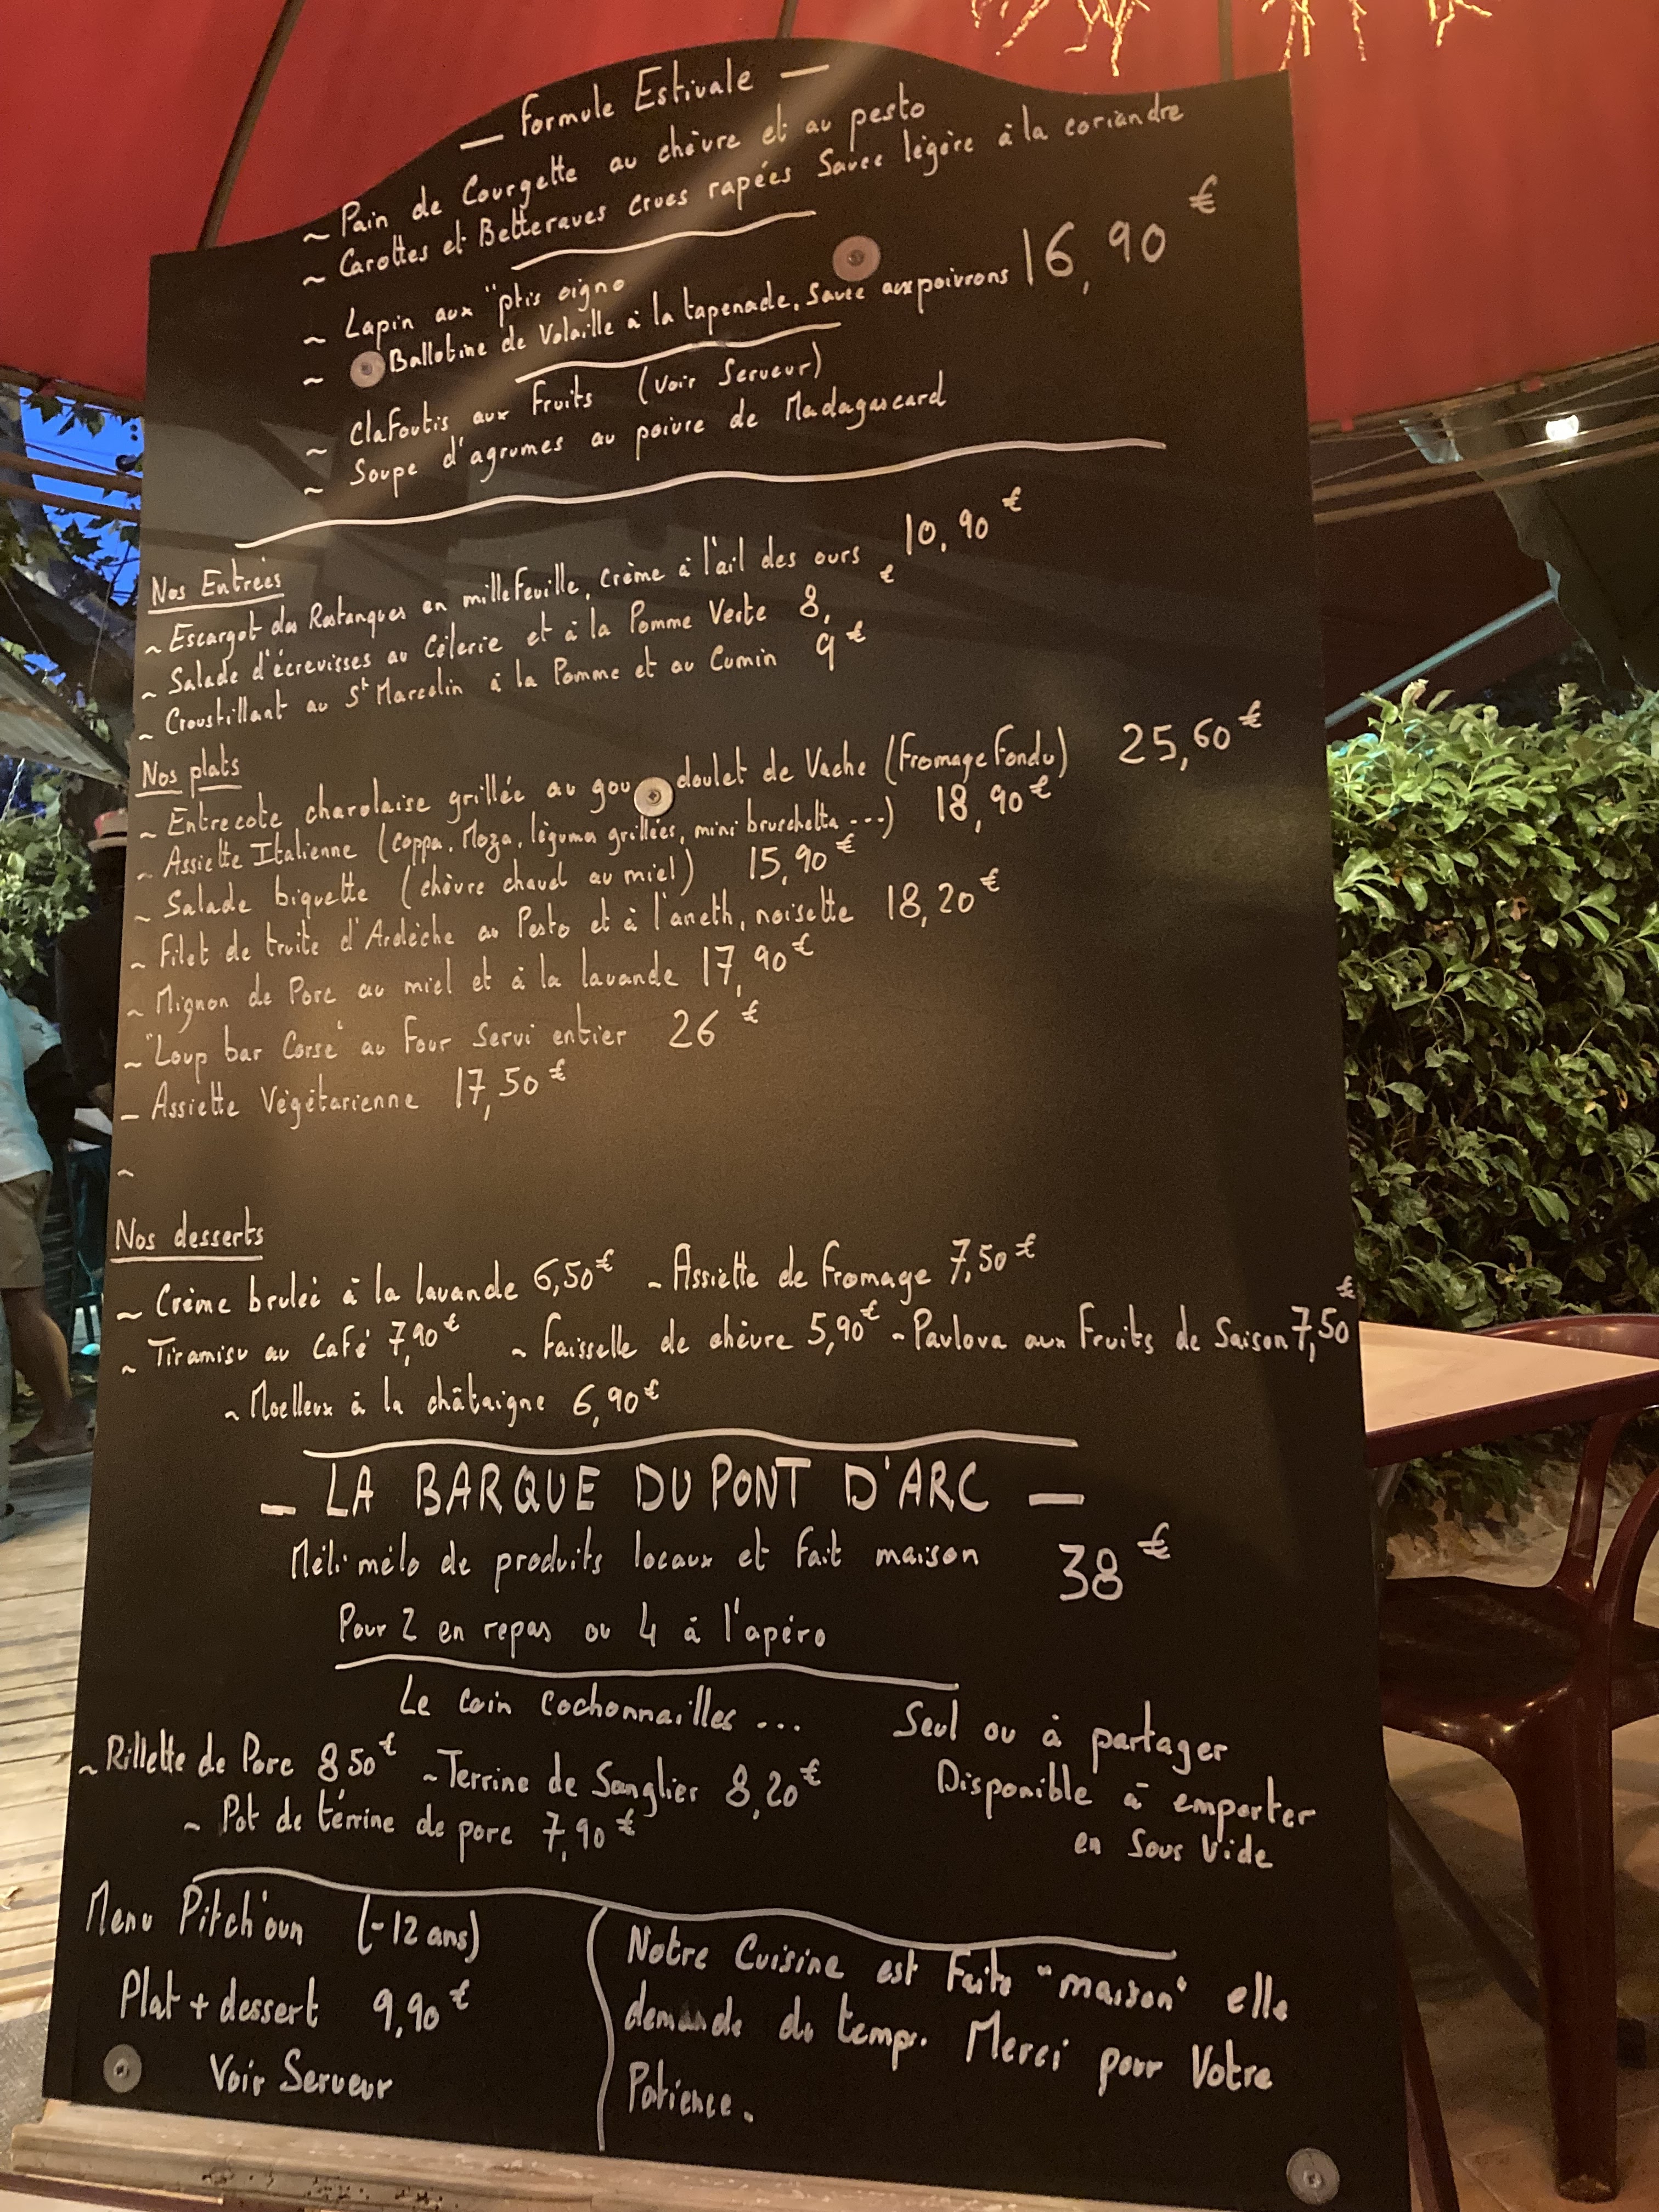 — Formule Estivale —
~ Pain de Courgette au chèvre et au pesto
~ Carottes et Betteraves crues rapées Sauce légère à la coriandre
~ Lapin aux "ptis oigno
~ Ballotine de Volaille à la tapenade, Sauce aux poivrons 16,90 €
~ Clafoutis aux Fruits (Voir Serveur)
~ Soupe d'agrumes au poivre de Madagascard
Nos Entrées
~ Escargot des Restanques en millefeuille, crème à l'ail des ours 10,90 €
~ Salade d'écrevisses au Célerie et à la Pomme Verte 8, €
~ Croustillant au St Marcelin à la Pomme et au Cumin 9 €
Nos plats
~ Entrecote charolaise grillée au gou doulet de Vache (Fromage Fondu) 25,60 €
~ Assiette Italienne (coppa, Moza, légumes grillées, mini bruschetta ...) 18,90 €
~ Salade biquette (chèvre chaud au miel) 15,90 €
~ Filet de truite d'Ardèche au Pesto et à l'aneth, noisette 18,20 €
~ Mignon de Porc au miel et à la lavande 17,90 €
~ "Loup bar Corse" au Four Servi entier 26 €
– Assiette Végétarienne 17,50 €
~
Nos desserts
~ Crème brulée à la lavande 6,50 € ~ Assiette de Fromage 7,50 €
~ Tiramisu au Café 7,90 € ~ Faisselle de chèvre 5,90 € ~ Pavlova aux Fruits de Saison 7,50 €
~ Moelleux à la châtaigne 6,90 €
— LA BARQUE DU PONT D'ARC —
Méli mélo de produits locaux et fait maison 38 €
Pour 2 en repas ou 4 à l'apéro
Le coin cochonnailles ...
~ Rillette de Porc 8,50 € ~ Terrine de Sanglier 8,20 €
~ Pot de térrine de porc 7,90 €
Seul ou à partager
Disponible à emporter
en Sous Vide
Menu Pitch'oun (-12 ans)
Plat + dessert 9,90 €
Voir Serveur
Notre Cuisine est Faite "maison" elle
demande du temps. Merci pour Votre
Patience.